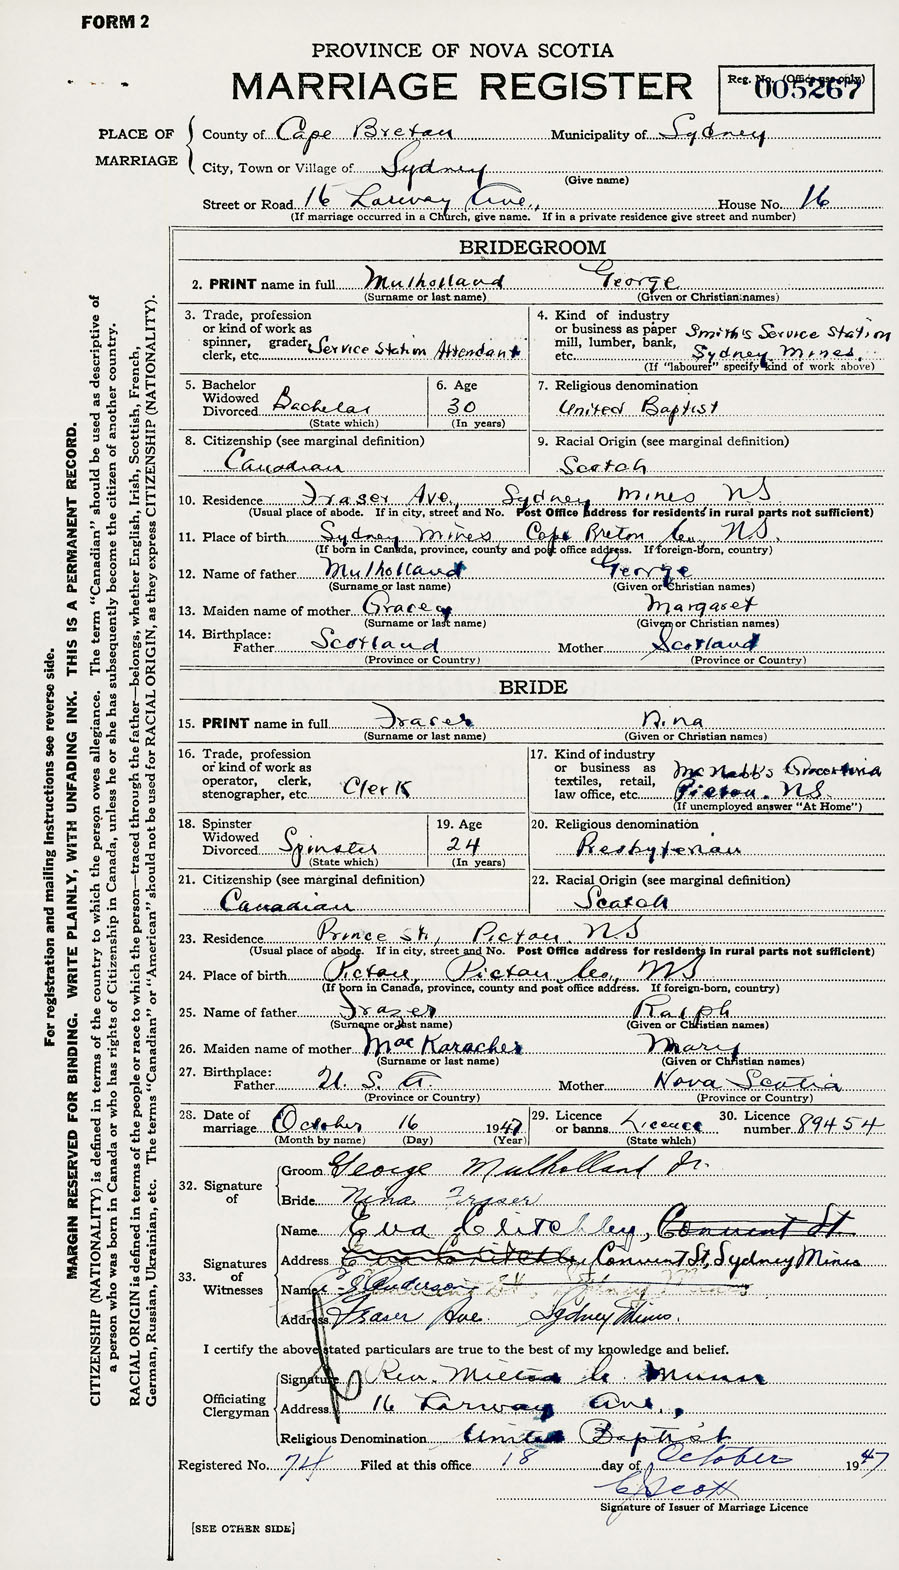 FORM 2
PROVINCE OF NOVA SCOTIA
MARRIAGE REGISTER
Reg. No. (Office use only)
005267
PLACE OF MARRIAGE
County of Cape Breton Municipality of Sydney
City, Town or Village of Sydney
(Give name)
Street or Road 16 Larway Ave., House No. 16
(If marriage occurred in a Church, give name. If in a private residence give street and number)
BRIDEGROOM
2. PRINT name in full Mulholland George
(Surname or last name) (Given or Christian names)
3. Trade, profession or kind of work as spinner, grader, clerk, etc. Service Station Attendant
4. Kind of industry or business as paper mill, lumber, bank, etc. Smith's Service Station Sydney Mines.
(If "labourer" specify kind of work above)
5. Bachelor Widowed Divorced Bachelor
(State which)
6. Age 30
(In years)
7. Religious denomination
United Baptist
8. Citizenship (see marginal definition)
Canadian
9. Racial Origin (see marginal definition)
Scotch
10. Residence Fraser Ave, Sydney Mines NS
(Usual place of abode. If in city, street and No. Post Office address for residents in rural parts not sufficient)
11. Place of birth Sydney Mines Cape Breton Co., N.S.
(If born in Canada, province, county and post office address. If foreign-born, country)
12. Name of father Mulholland George
(Surname or last name) (Given or Christian names)
13. Maiden name of mother Margaret
(Surname or last name) (Given or Christian names)
14. Birthplace:
Father Scotland Mother Scotland
(Province or Country) (Province or Country)
BRIDE
15. PRINT name in full Fraser Nina
(Surname or last name) (Given or Christian names)
16. Trade, profession or kind of work as operator, clerk, stenographer, etc. Clerk
17. Kind of industry or business as textiles, retail, law office, etc. McNabb's Pictou. N.S.
(If unemployed answer "At Home")
18. Spinster Widowed Divorced Spinster
(State which)
19. Age 24
(In years)
20. Religious denomination
Presbyterian
21. Citizenship (see marginal definition)
Canadian
22. Racial Origin (see marginal definition)
Scotch
23. Residence Prince St., Pictou N.S
(Usual place of abode. If in city, street and No. Post Office address for residents in rural parts not sufficient)
24. Place of birth Pictou, Pictou Co., NS
(If born in Canada, province, county and post office address. If foreign-born, country)
25. Name of father Frazer Ralph
(Surname or last name) (Given or Christian names)
26. Maiden name of mother Mac Karacher Mary
(Surname or last name) (Given or Christian names)
27. Birthplace:
Father U. S. A. Mother Nova Scotia
(Province or Country) (Province or Country)
28. Date of marriage October 16 1947
(Month by name) (Day) (Year)
29. Licence or banns Licence
(State which)
30. Licence number 89454
32. Signature of
Groom George Mulholland Jr.
Bride Nina Fraser
33. Signatures of Witnesses
Name Eva Critchley, Convent St
Address Eva Critchley Convent St, Sydney Mines
Name Anderson
Address Fraser Ave. Sydney Mines.
I certify the above stated particulars are true to the best of my knowledge and belief.
Officiating Clergyman
Signature Rev. C. Munn
Address 16 Larway Ave.,
Religious Denomination United Baptist
Registered No. 74 Filed at this office 18 day of October 1947
C Scott
Signature of Issuer of Marriage Licence
[SEE OTHER SIDE]
For registration and mailing instructions see reverse side.
MARGIN RESERVED FOR BINDING. WRITE PLAINLY, WITH UNFADING INK. THIS IS A PERMANENT RECORD.
CITIZENSHIP (NATIONALITY) is defined in terms of the country to which the person owes allegiance. The term "Canadian" should be used as descriptive of
a person who was born in Canada or who has rights of Citizenship in Canada, unless he or she has subsequently become the citizen of another country.
RACIAL ORIGIN is defined in terms of the people or race to which the person—traced through the father—belongs, whether English, Irish, Scottish, French,
German, Russian, Ukrainian, etc. The terms "Canadian" or "American" should not be used for RACIAL ORIGIN, as they express CITIZENSHIP (NATIONALITY).